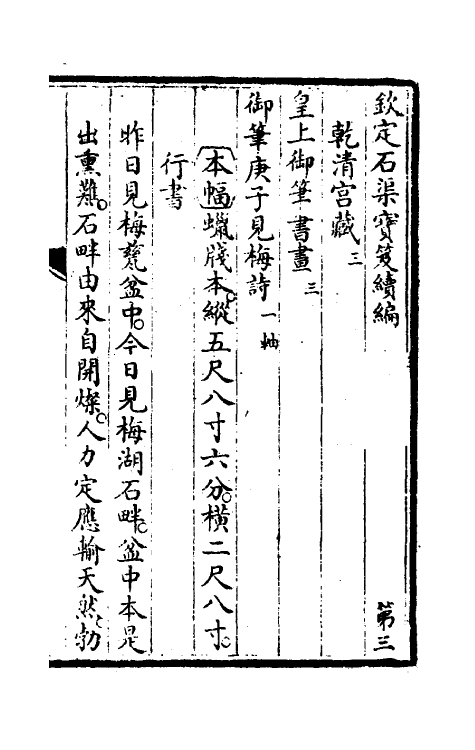 欽定石渠寶笈續編　第三
乾清宮藏三
皇上御筆書畫三
御筆庚子見梅詩一軸
本幅蠟牋本。縱五尺八寸六分。橫二尺八寸。
行書
昨日見梅甆盆中。今日見梅湖石畔。盆中本是
出熏難。石畔由來自開燦。人力定應輸天然。勃